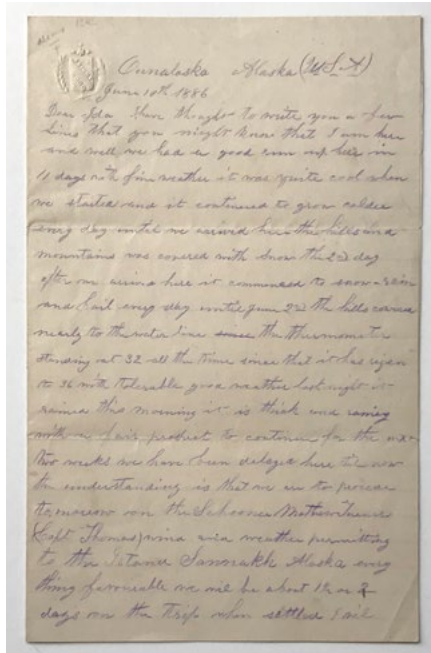 Ounalaska Alaska (U S A)
June 10th 1886
Dear Ida I have thought to write you a few
lines that you might know that I am here
and well we had a good run up here in
11 days with fine weather it was quite cool when
we started and it continued to grow colder
every day until we arrived here the hills and
mountains was covered with snow the 2d day
after our arrival here it commenced to snow rain
and hail every day until June 2d the hills covered
nearly to the water line since the thermometer
standing at 32 all the time since that it has risen
to 36 with tolerable good weather last night it
rained this morning it is thick and
with a fair prospect to continue for the next
two weeks we have been delayed here till now
the understanding is that we are to proceed
tomorrow on the Schooner
Capt Thomas wind and weather permitting
to the Island Sannakh Alaska every
thing favourable we will be about 1½ or 2
days on the trip when settled I will